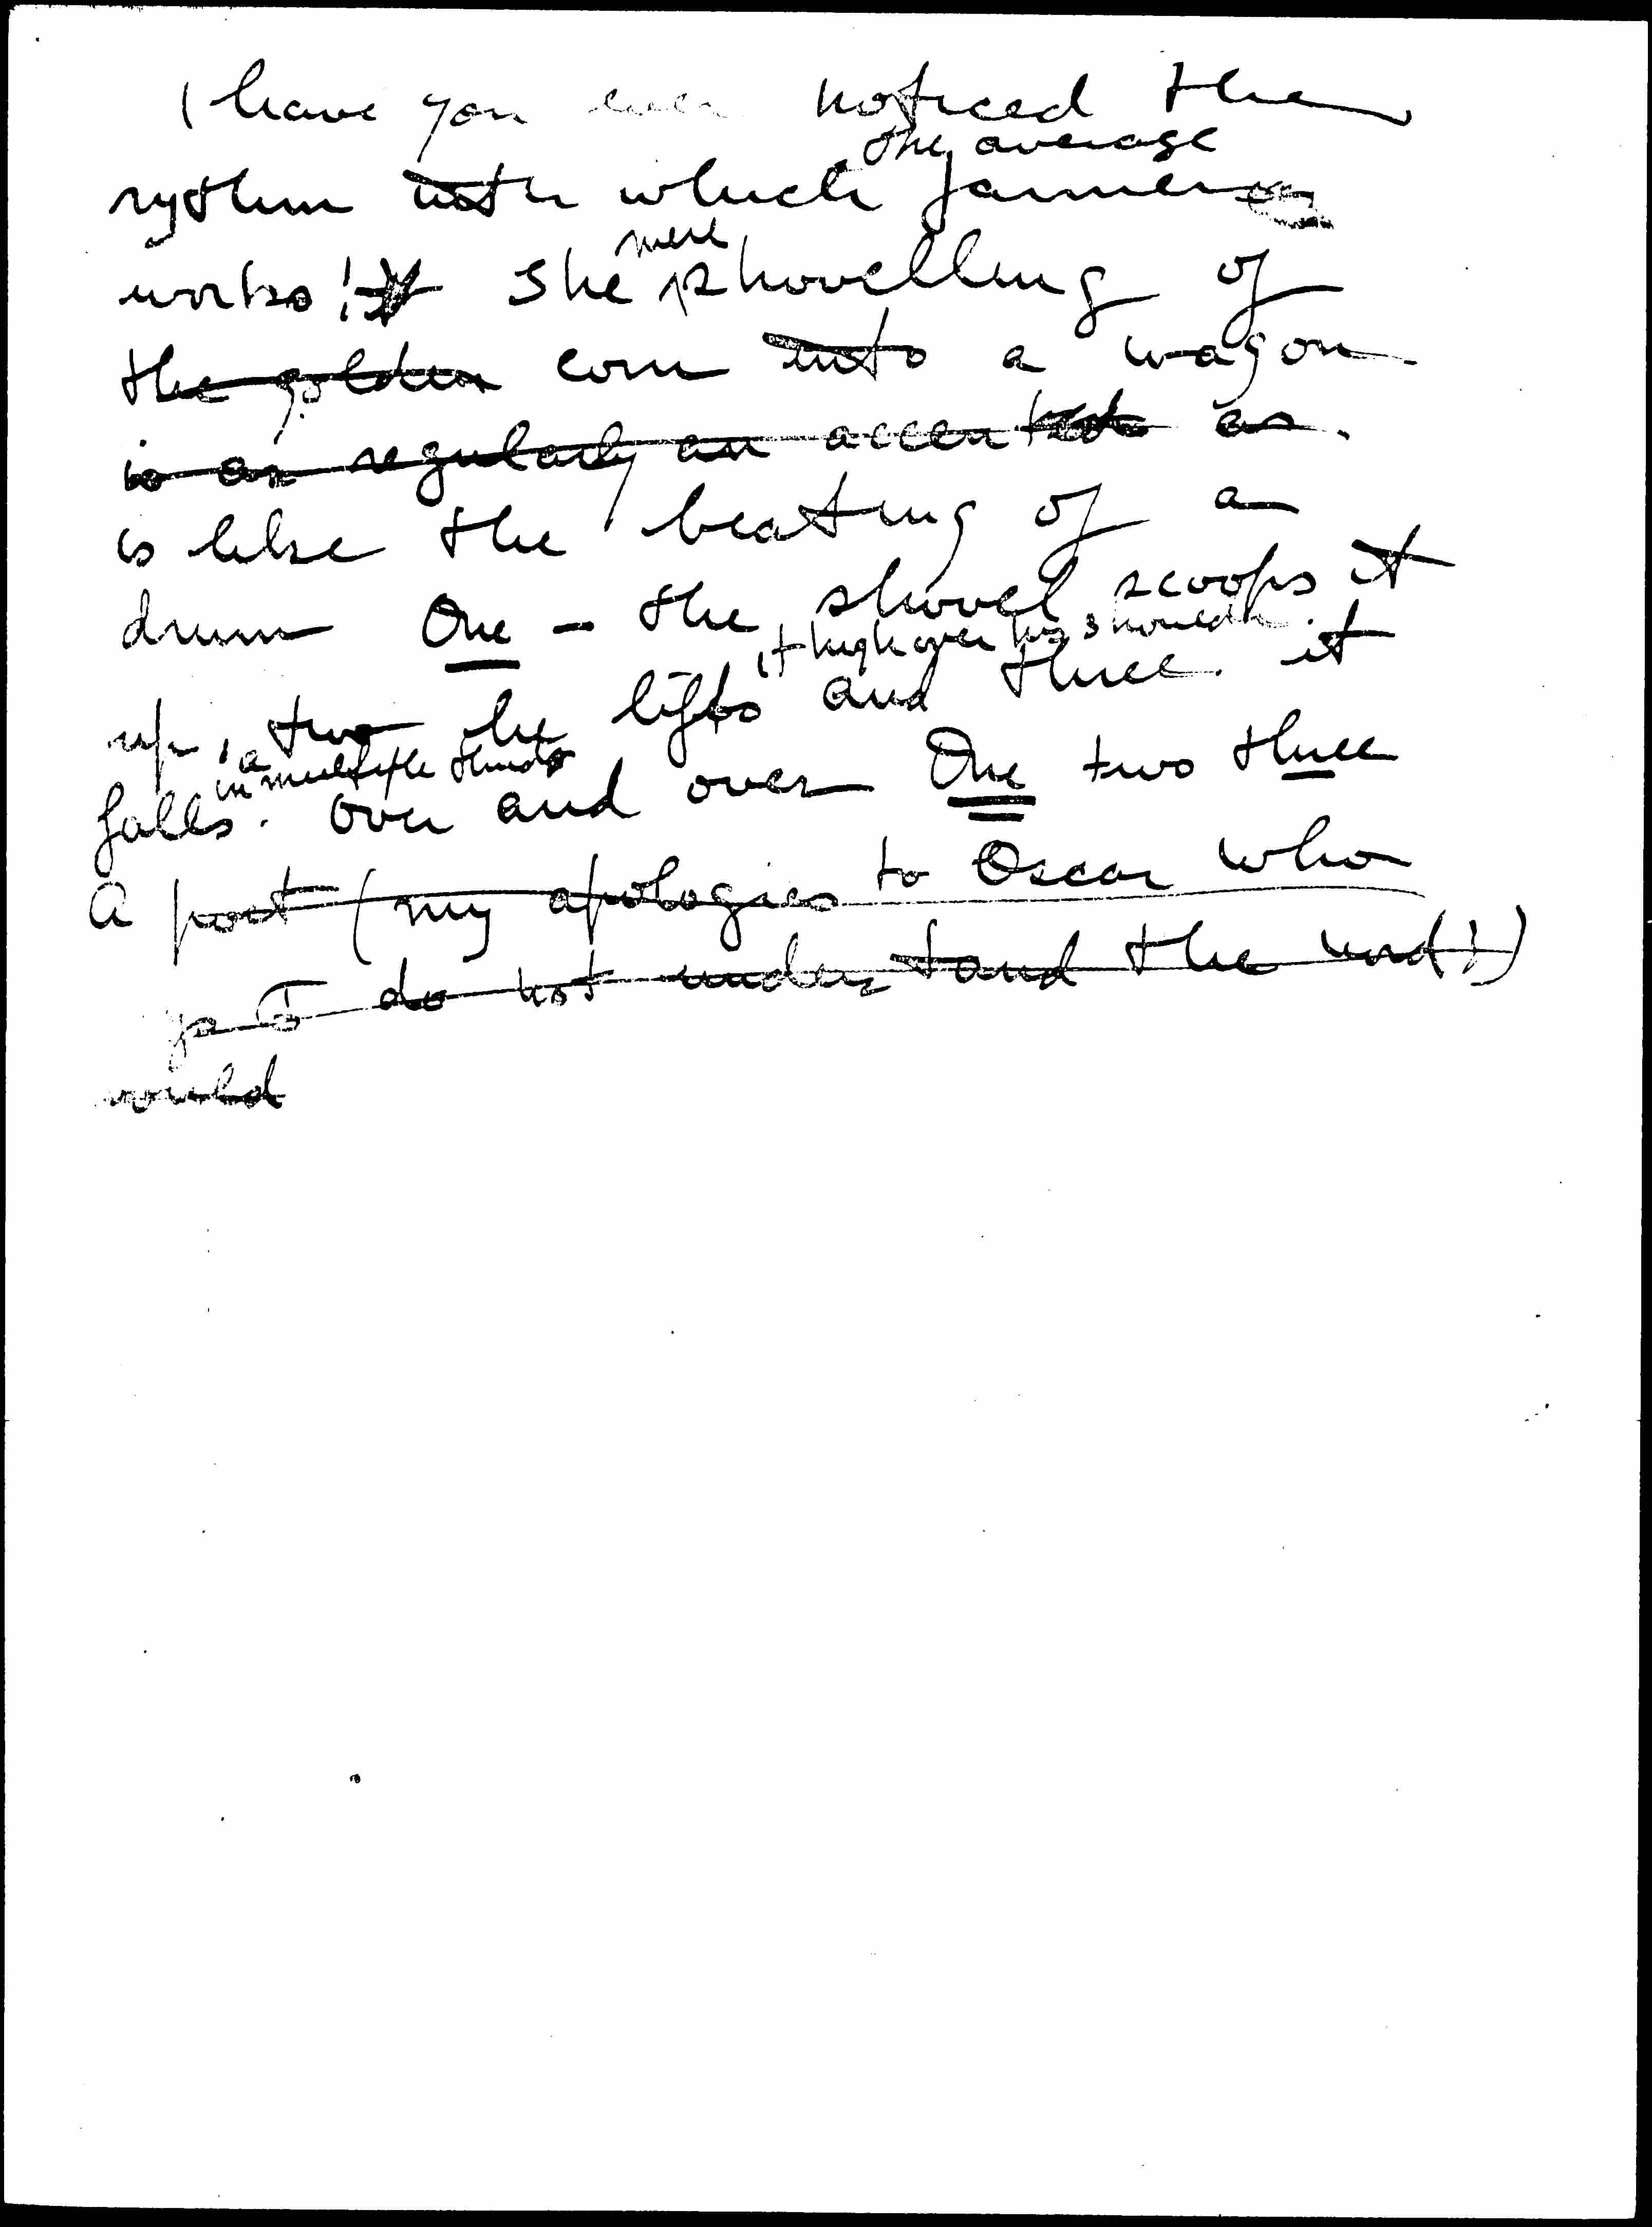 ( have you ever noticed the
the average
rythm with which farmer
works! The mere shovelling of
the golden corn into a wagon
is as regularly an accented as
is like the beating of a
drum One - the shovel scoops it
it high over his shoulder
up, two he lifts and three it
in a multiple thuds
falls. Over and over One two three
A poet (my apologies to Oscar who
I do not understand the word!)
would